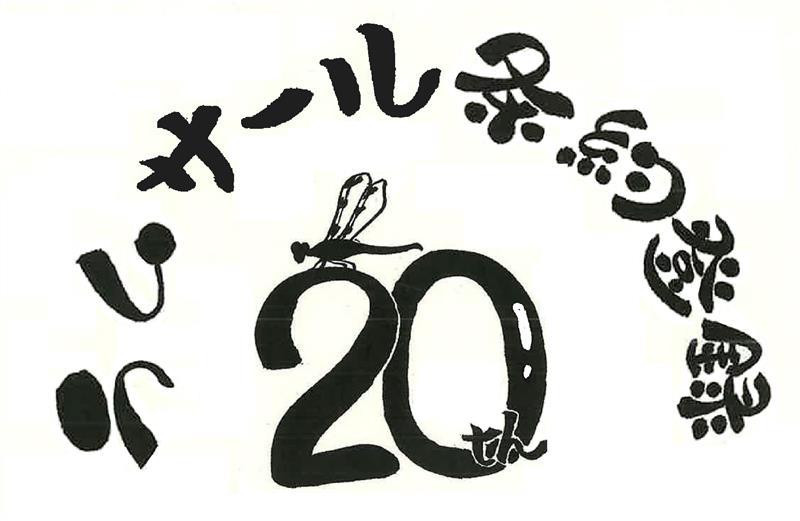 ラムサール条約登録
20
せん